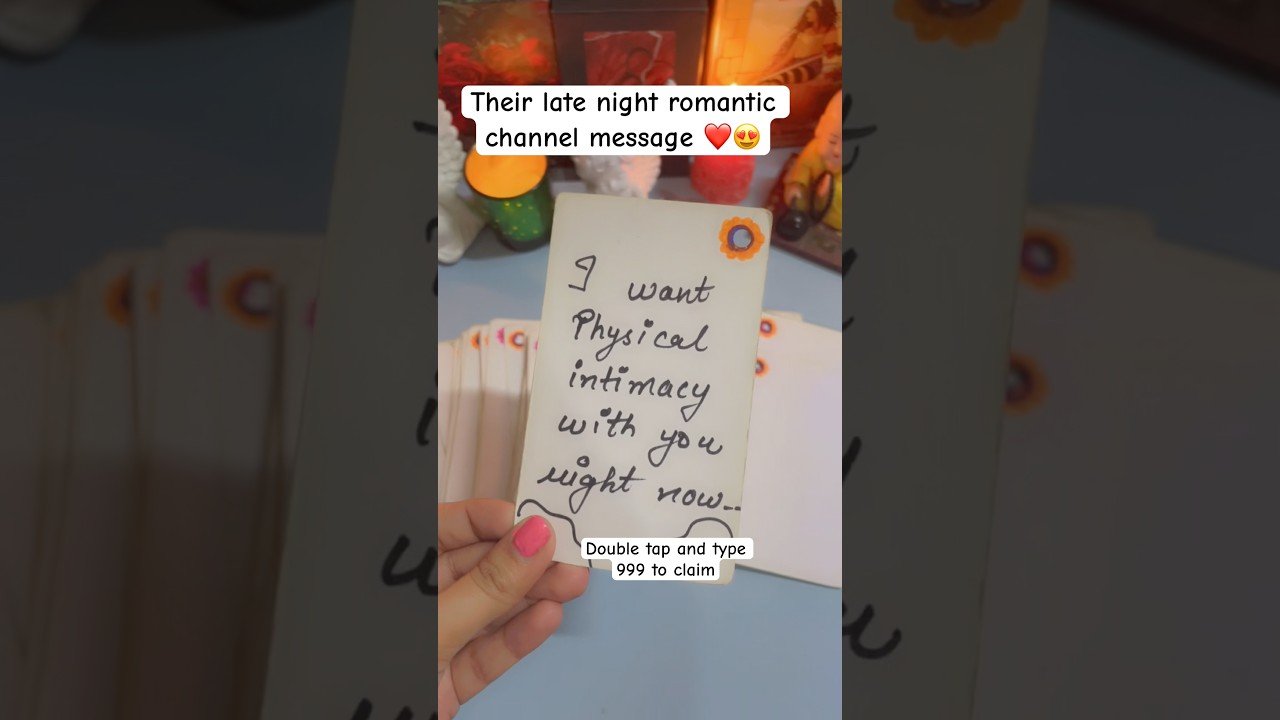 Their late night romantic
channel message ❤️😍
I want
Physical
intimacy
with you
right now..
Double tap and type
999 to claim